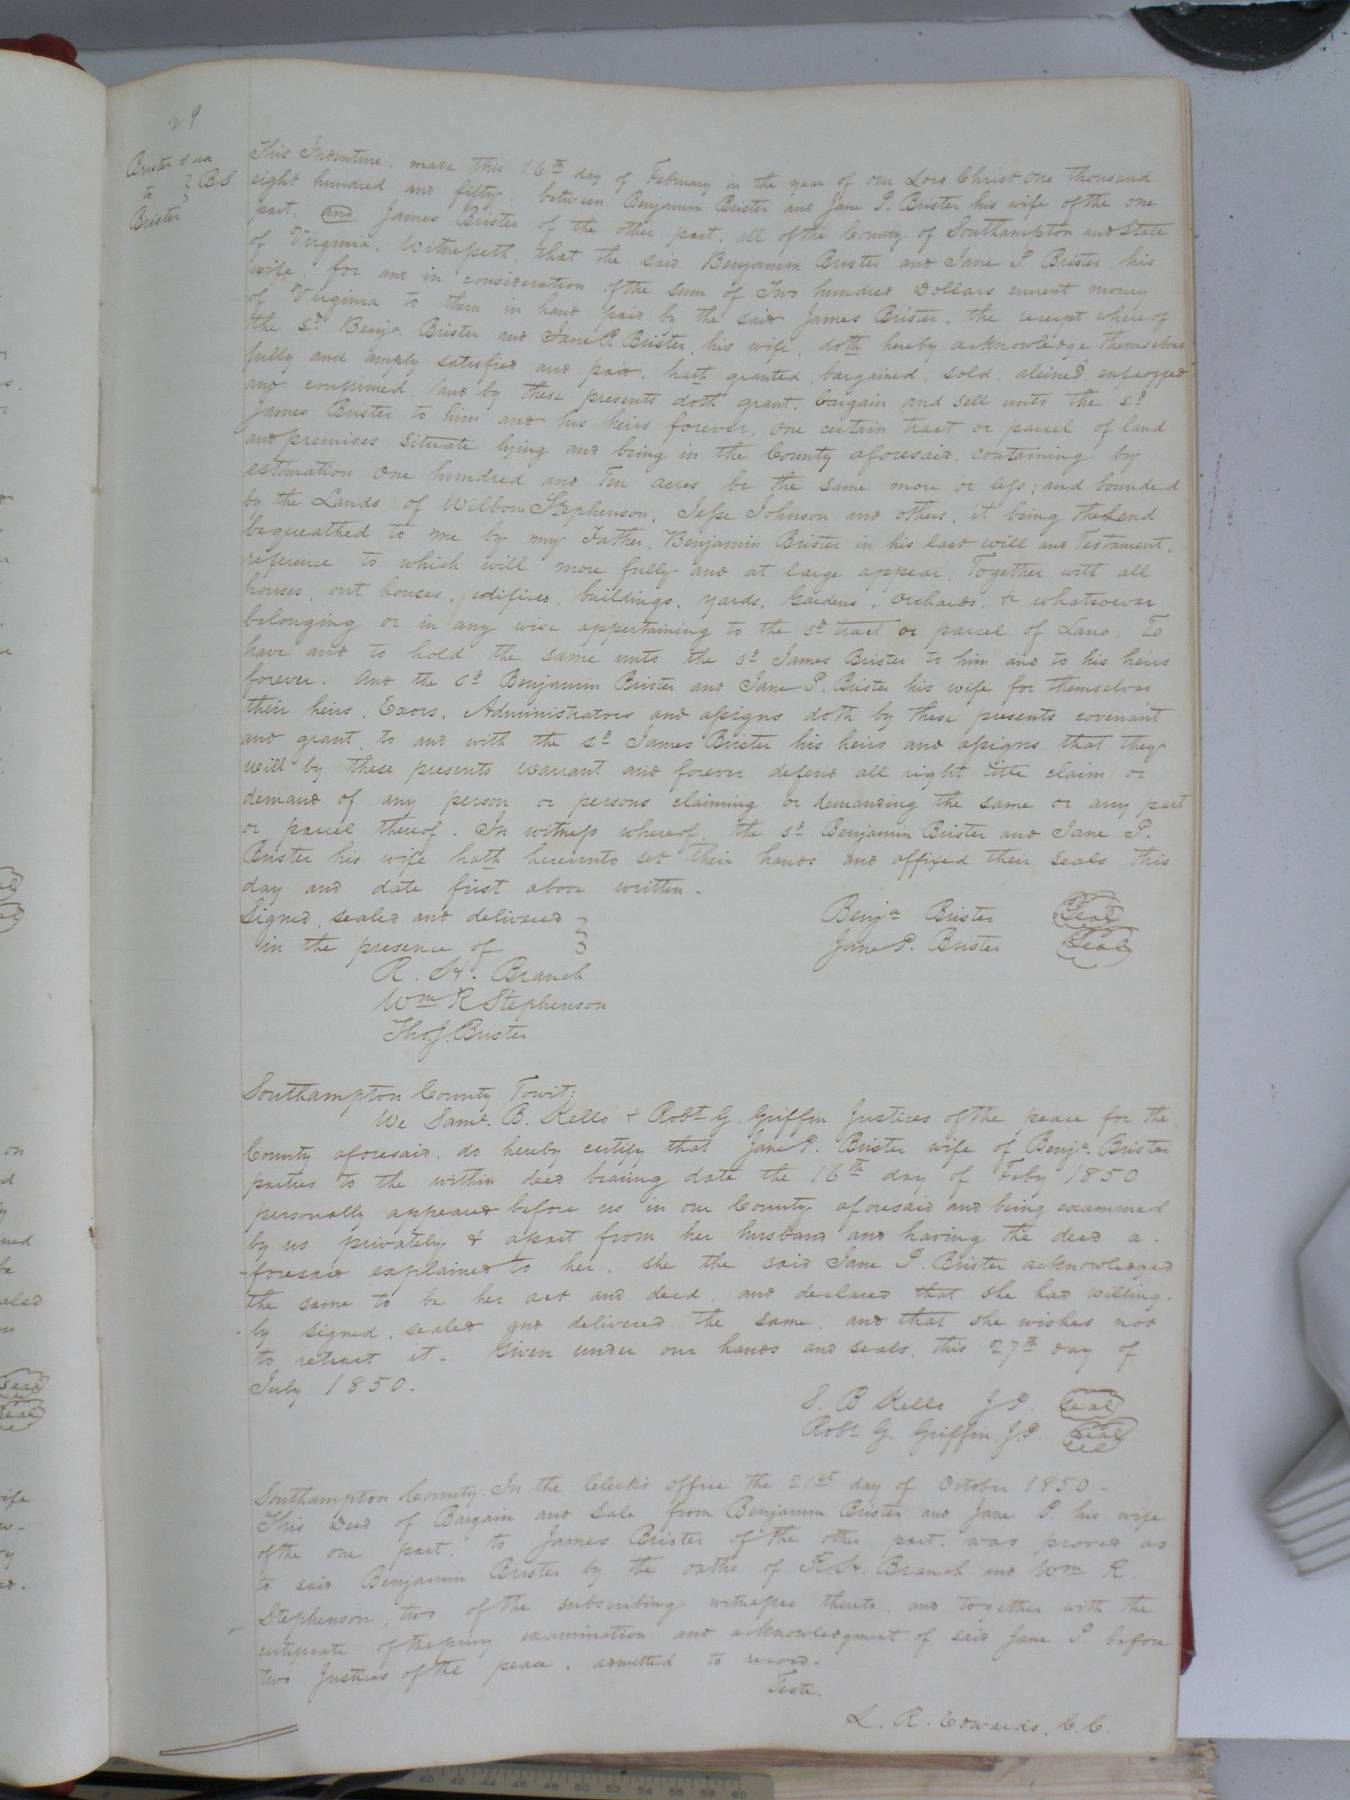 29
Brister & ux
to } B.S
Brister
This Indenture, made this 16th day of February in the year of our Lord Christ one thousand
eight hundred and fifty, between Benjamin Brister and Jane P. Brister his wife of the one
part, and James Brister of the other part, all of the County of Southampton and State
of Virginia. Witnesseth, that the said Benjamin Brister and Jane P. Brister his
wife, for and in consideration of the sum of Two hundred Dollars current money
of Virginia to them in hand paid by the said James Brister, the receipt whereof
the sd. Benja. Brister and Jane P. Brister, his wife, doth hereby acknowledge themselves
fully and amply satisfied and paid, hath granted, bargained, sold, aliened, enfeoffed
and confirmed, and by these presents doth grant, bargain and sell unto the sd.
James Brister to him and his heirs forever, one certain tract or parcel of land
and premises situate lying and being in the County aforesaid, containing by
estimation one hundred and Ten acres be the same more or less; and bounded
by the Lands of Wilbon Stephenson, Jesse Johnson and others, it being the Land
bequeathed to me by my Father, Benjamin Brister in his last will and Testament,
reference to which will more fully and at large appear, Together with all
houses, out houses, edifices, buildings, yards, Gardens, Orchards, & whatsoever
belonging or in any wise appertaining to the sd. tract or parcel of Land, To
have and to hold the same unto the sd. James Brister to him and to his heirs
forever. And the sd. Benjamin Brister and Jane P. Brister his wife for themselves
their heirs, Exors, Administrators and assigns doth by these presents covenant
and grant, to and with the sd. James Brister his heirs and assigns that they
will by these presents warrant and forever defend all right title claim or
demand of any person or persons claiming or demanding the same or any part
or parcel thereof. In witness whereof, the sd. Benjamin Brister and Jane P.
Brister his wife hath hereunto set their hands and affixed their seals this
day and date first above written.
Signed, sealed and delivered } Benja Brister Seal
in the presence of } Jane P. Brister Seal
R. H. Branch
Wm R Stephenson
Tho. J. Brister
Southampton County Towit:
We Saml. B. Kello & Robt G. Griffin Justices of the peace for the
County aforesaid, do hereby certify that Jane P. Brister wife of Benja. Brister
parties to the within deed bearing date the 16th day of Feby 1850
personally appeared before us in our County aforesaid and being examined
by us privately & apart from her husband and having the deed a-
-foresaid explained to her, she the said Jane P. Brister acknowledged
the same to be her act and deed, and declared that she had willing-
ly signed, sealed and delivered the same, and that she wishes not
to retract it. Given under our hands and seals, this 27th day of
July 1850.
S. B Kello J P. Seal
Robt G. Griffin J.P. Seal
Southampton County. In the Clerk's office the 21st day of October 1850.
This Deed of Bargain and Sale from Benjamin Brister and Jane P. his wife
of the one part, to James Brister of the other part, was proved as
to said Benjamin Brister by the oaths of R. H. Branch and Wm R.
Stephenson, two of the subscribing witnesses thereto, and together with the
certificate of the privy examination and acknowledgment of said Jane P. before
two Justices of the peace, admitted to record.
Teste.
L. R. Edwards, C.C.